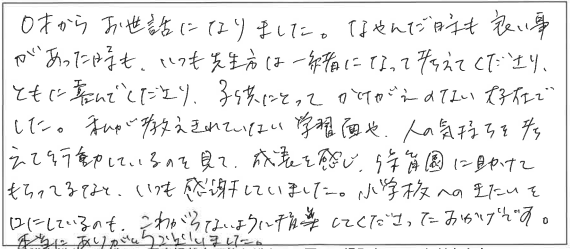 0才からお世話になりました。なやんだ時も良い事
があった時も、いつも先生方は一緒になって考えてくださり、
ともに喜んでくださり、子供にとってかけがえのない存在で
した。私が教えきれていない学習面や、人の気持ちを考
えて行動しているのを見て、成長を感じ、保育園に助けて
もらってるなと、いつも感謝していました。小学校への
口にしているのも、これからないように指導してくださったおかげです。
本当にありがとうございました。